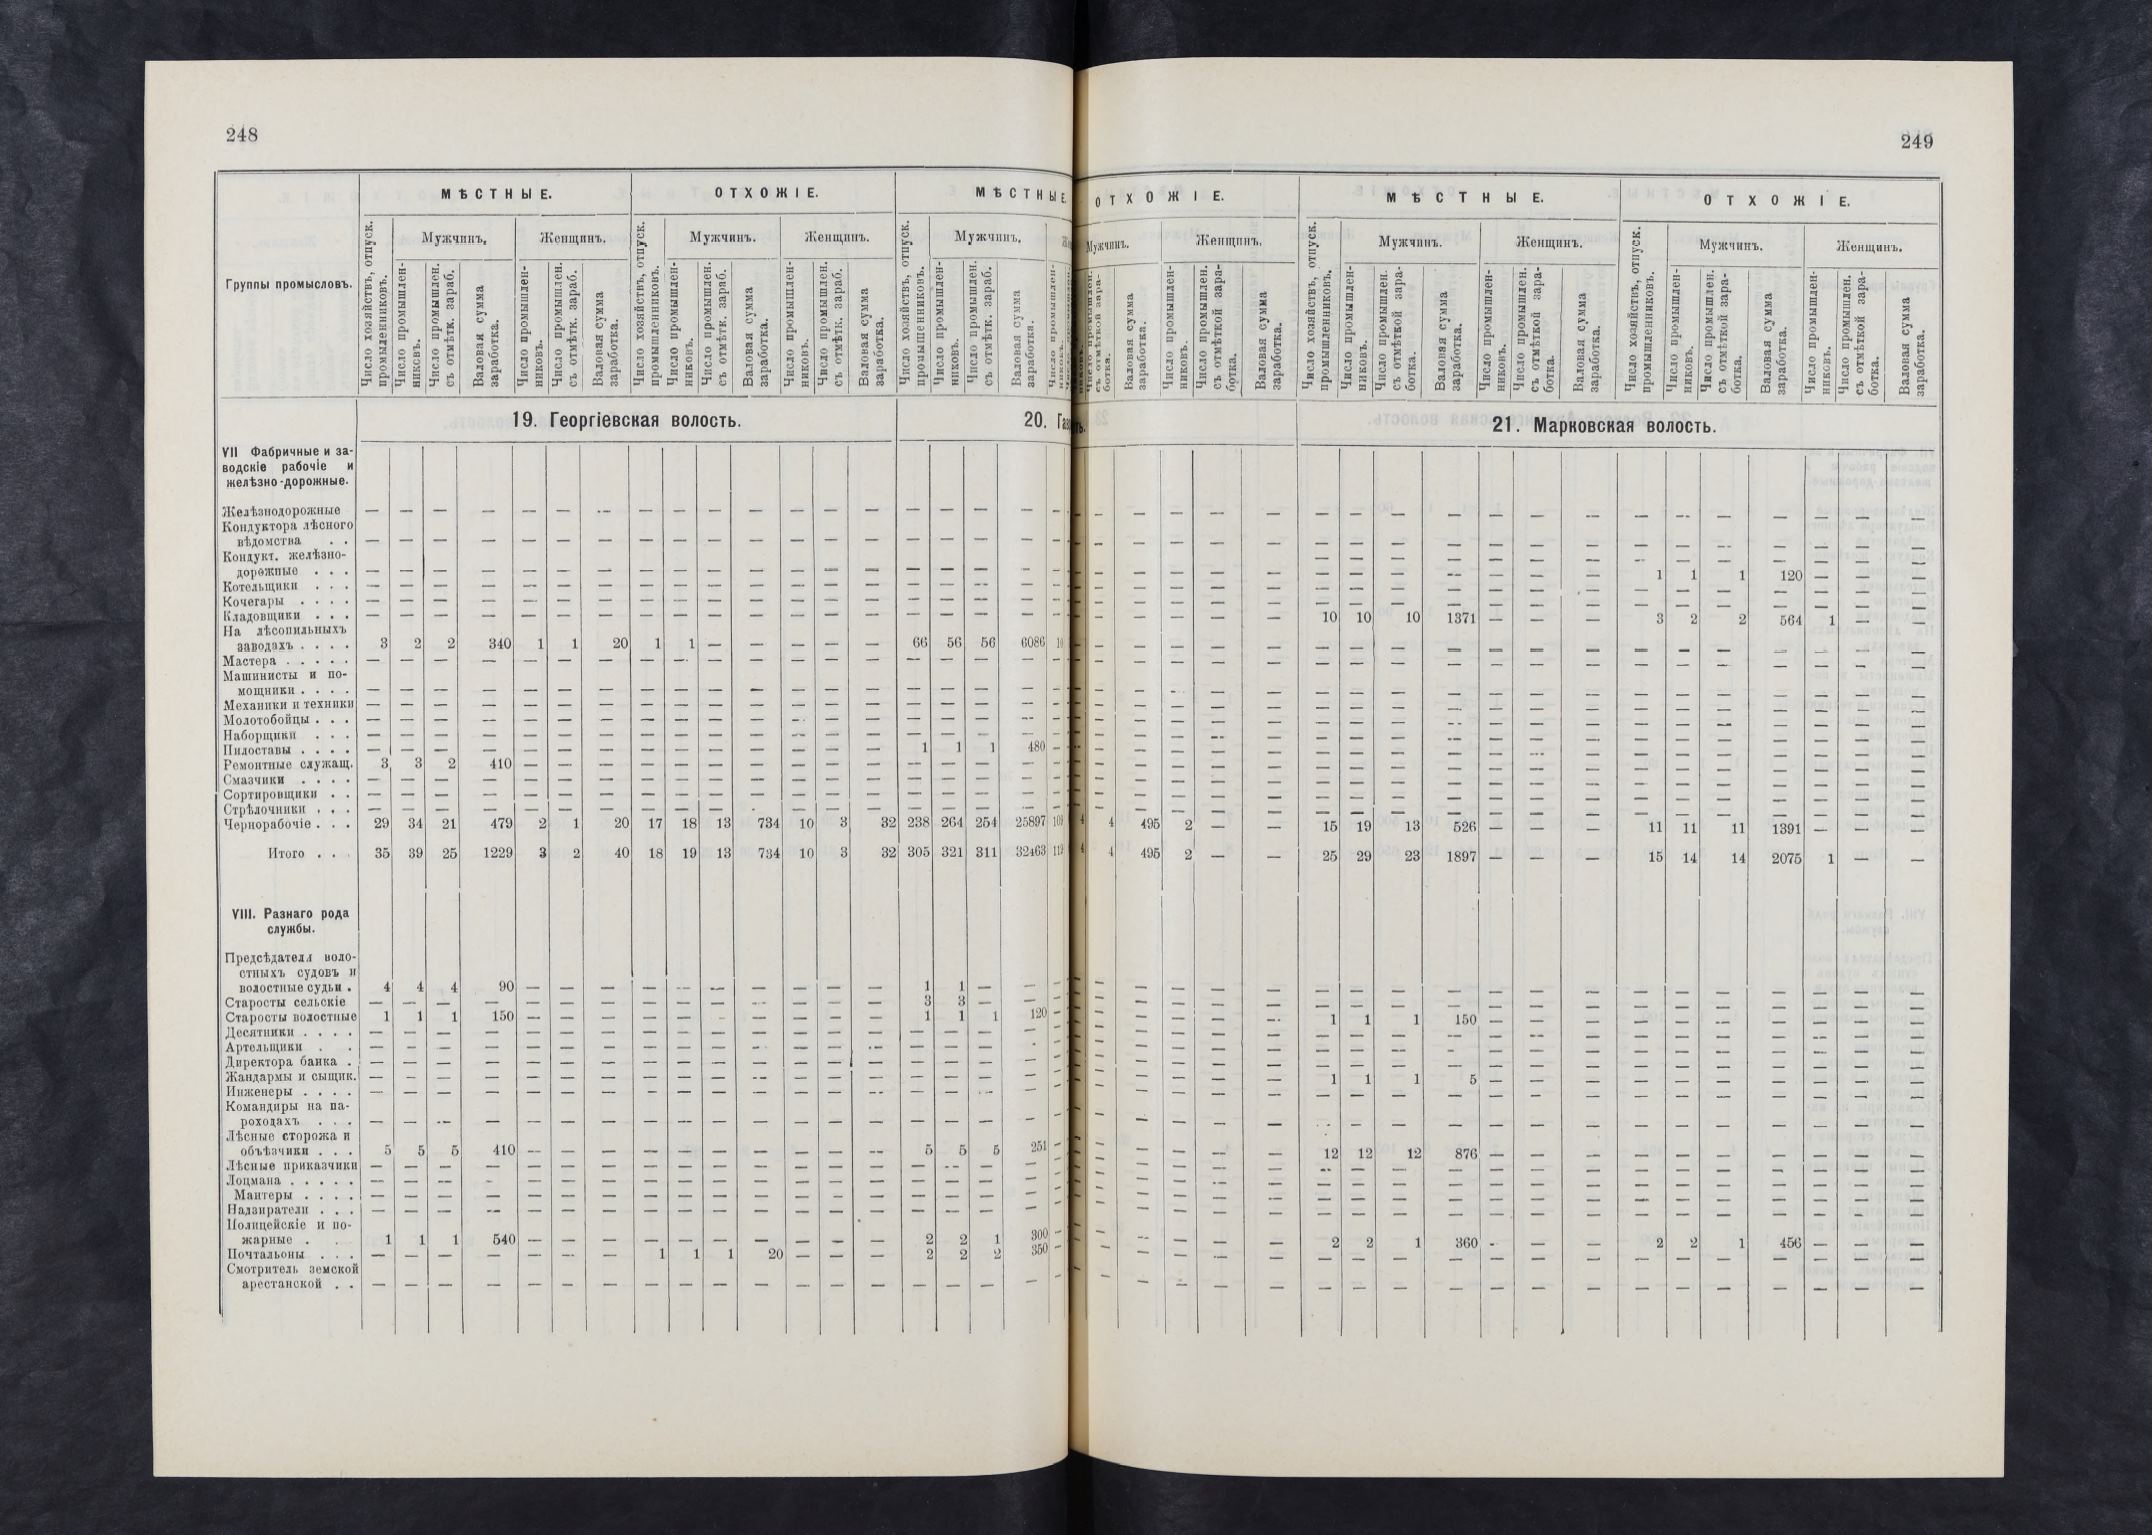 248
Группы промысловъ.
МѢСТНЫЕ.
ОТХОЖІЕ.
МѢСТНЫЕ
Мужчинъ.
Женщинъ.
Мужчинъ.
Женщинъ.
Мужчинъ.
Число хозяйствъ, отпуск. промышленниковъ.
Число промышленниковъ.
Число промышлен. съ отмѣтк. зараб.
Валовая сумма заработка.
Число промышленниковъ.
Число промышлен. съ отмѣтк. зараб.
Валовая сумма заработка.
Число хозяйствъ, отпуск. промышленниковъ.
Число промышленниковъ.
Число промышлен. съ отмѣтк. зараб.
Валовая сумма заработка.
Число промышленниковъ.
Число промышлен. съ отмѣтк. зараб.
Валовая сумма заработка.
Число хозяйствъ, отпуск. промышленниковъ.
Число промышленниковъ.
Число промышлен. съ отмѣтк. зараб.
Валовая сумма заработка.
19. Георгіевская волость.
20.
VII Фабричные и за-
водскіе рабочіе и
желѣзно-дорожные.
Желѣзнодорожные — — — — — — — — — — — — — — — — — —
Кондуктора лѣсного
вѣдомства . . — — — — — — — — — — — — — — — — — —
Кондукт. желѣзно-
дорожные . . . — — — — — — — — — — — — — — — — — —
Котельщики . . . — — — — — — — — — — — — — — — — — —
Кочегары . . . . — — — — — — — — — — — — — — — — — —
Кладовщики . . . — — — — — — — — — — — — — — — — — —
На лѣсопильныхъ
заводахъ . . . . 3 2 2 340 1 1 20 1 1 — — — — — 66 56 56 6086
Мастера . . . . . — — — — — — — — — — — — — — — — — —
Машинисты и по-
мощники . . . . — — — — — — — — — — — — — — — — — —
Механики и техники — — — — — — — — — — — — — — — — — —
Молотобойцы . . . — — — — — — — — — — — — — — — — — —
Наборщики . . . — — — — — — — — — — — — — — — — — —
Пилоставы . . . . — — — — — — — — — — — — — — 1 1 1 480
Ремонтные служащ. 3 3 2 410 — — — — — — — — — — — — — —
Смазчики . . . . — — — — — — — — — — — — — — — — — —
Сортировщики . . — — — — — — — — — — — — — — — — — —
Стрѣлочники . . . — — — — — — — — — — — — — — — — — —
Чернорабочіе . . . 29 34 21 479 2 1 20 17 18 13 734 10 3 32 238 264 254 25897 109
Итого . . . 35 39 25 1229 3 2 40 18 19 13 734 10 3 32 305 321 311 32463
VIII. Разнаго рода
службы.
Предсѣдатели воло-
стныхъ судовъ и
волостные судьи . 4 4 4 90 — — — — — — — — — — 1 1 — —
Старосты сельскіе — — — — — — — — — — — — — — 3 3 — —
Старосты волостные 1 1 1 150 — — — — — — — — — — 1 1 1 120
Десятники . . . . — — — — — — — — — — — — — — — — — —
Артельщики . . — — — — — — — — — — — — — — — — — —
Директора банка . — — — — — — — — — — — — — — — — — —
Жандармы и сыщик. — — — — — — — — — — — — — — — — — —
Инженеры . . . . — — — — — — — — — — — — — — — — — —
Командиры на па-
роходахъ . . . — — — — — — — — — — — — — — — — — —
Лѣсные сторожа и
объѣзчики . . . 5 5 5 410 — — — — — — — — — — 5 5 5 251
Лѣсные приказчики — — — — — — — — — — — — — — — — — —
Лоцмана . . . . . — — — — — — — — — — — — — — — — — —
Мантеры . . . . — — — — — — — — — — — — — — — — — —
Надзиратели . . . — — — — — — — — — — — — — — — — — —
Полицейскіе и по-
жарные . . 1 1 1 540 — — — — — — — — — — 2 2 1 300
Почтальоны . . . — — — — — — — 1 1 1 20 — — — 2 2 2 350
Смотритель земской
арестанской . . — — — — — — — — — — — — — — — — — —
249
ОТХОЖІЕ.
МѢСТНЫЕ.
ОТХОЖІЕ.
Мужчинъ.
Женщинъ.
Мужчинъ.
Женщинъ.
Мужчинъ.
Женщинъ.
съ отмѣткой заработка.
Валовая сумма заработка.
Число промышленниковъ.
Число промышлен. съ отмѣткой заработка.
Валовая сумма заработка.
Число хозяйствъ, отпуск. промышленниковъ.
Число промышленниковъ.
Число промышлен. съ отмѣткой заработка.
Валовая сумма заработка.
Число промышленниковъ.
Число промышлен. съ отмѣткой заработка.
Валовая сумма заработка.
Число хозяйствъ, отпуск. промышленниковъ.
Число промышленниковъ.
Число промышлен. съ отмѣткой заработка.
Валовая сумма заработка.
Число промышленниковъ.
Число промышлен. съ отмѣткой заработка.
Валовая сумма заработка.
21. Марковская волость.
1 1 1 120 — — —
10 10 10 1371 — — — 3 2 2 564 1 — —
4 4 495 2 — — 15 19 13 526 — — — 11 11 11 1391 — — —
4 4 495 2 — — 25 29 23 1897 — — — 15 14 14 2075 1 — —
1 1 1 150 — — — — — — — — — —
1 1 1 5 — — — — — — — — — —
12 12 12 876 — — — — — — — — — —
2 2 1 360 — — — 2 2 1 456 — — —